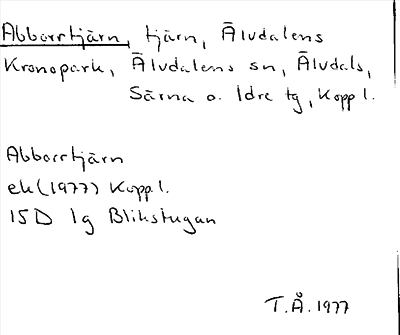 Abborrtjärn, tjärn, Älvdalens
Kronopark, Älvdalens sn, Älvdals,
Särna o. Idre tg, Kopp l.
Abborrtjärn
ek (1977) Kopp l.
15D 1g Blikstugan
T.Å. 1977